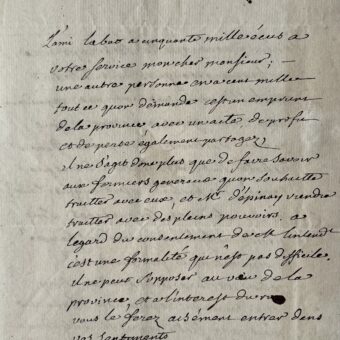 L'ami labat a cinquante mille écus a
votre service mon cher monsieur; —
une autre personne en a cent mille
tout ce quon demande cest un emprunt
de la province avec un acte de profit
et de perte également partagez
il ne s'agit donc plus que de faire savoir
aux fermiers generaux quon souhaitte
traitter avec eux, et Mr d'épinay viendra
traitter avec des pleins pouvoirs. a
legard du consentement de Mr lintendt
c'est une formalité qui n'est pas difficile.
il ne peut s'opposer au vœu de la
province, et a l'interest du roy
vous le ferez aisément entrer dans
vos sentiments